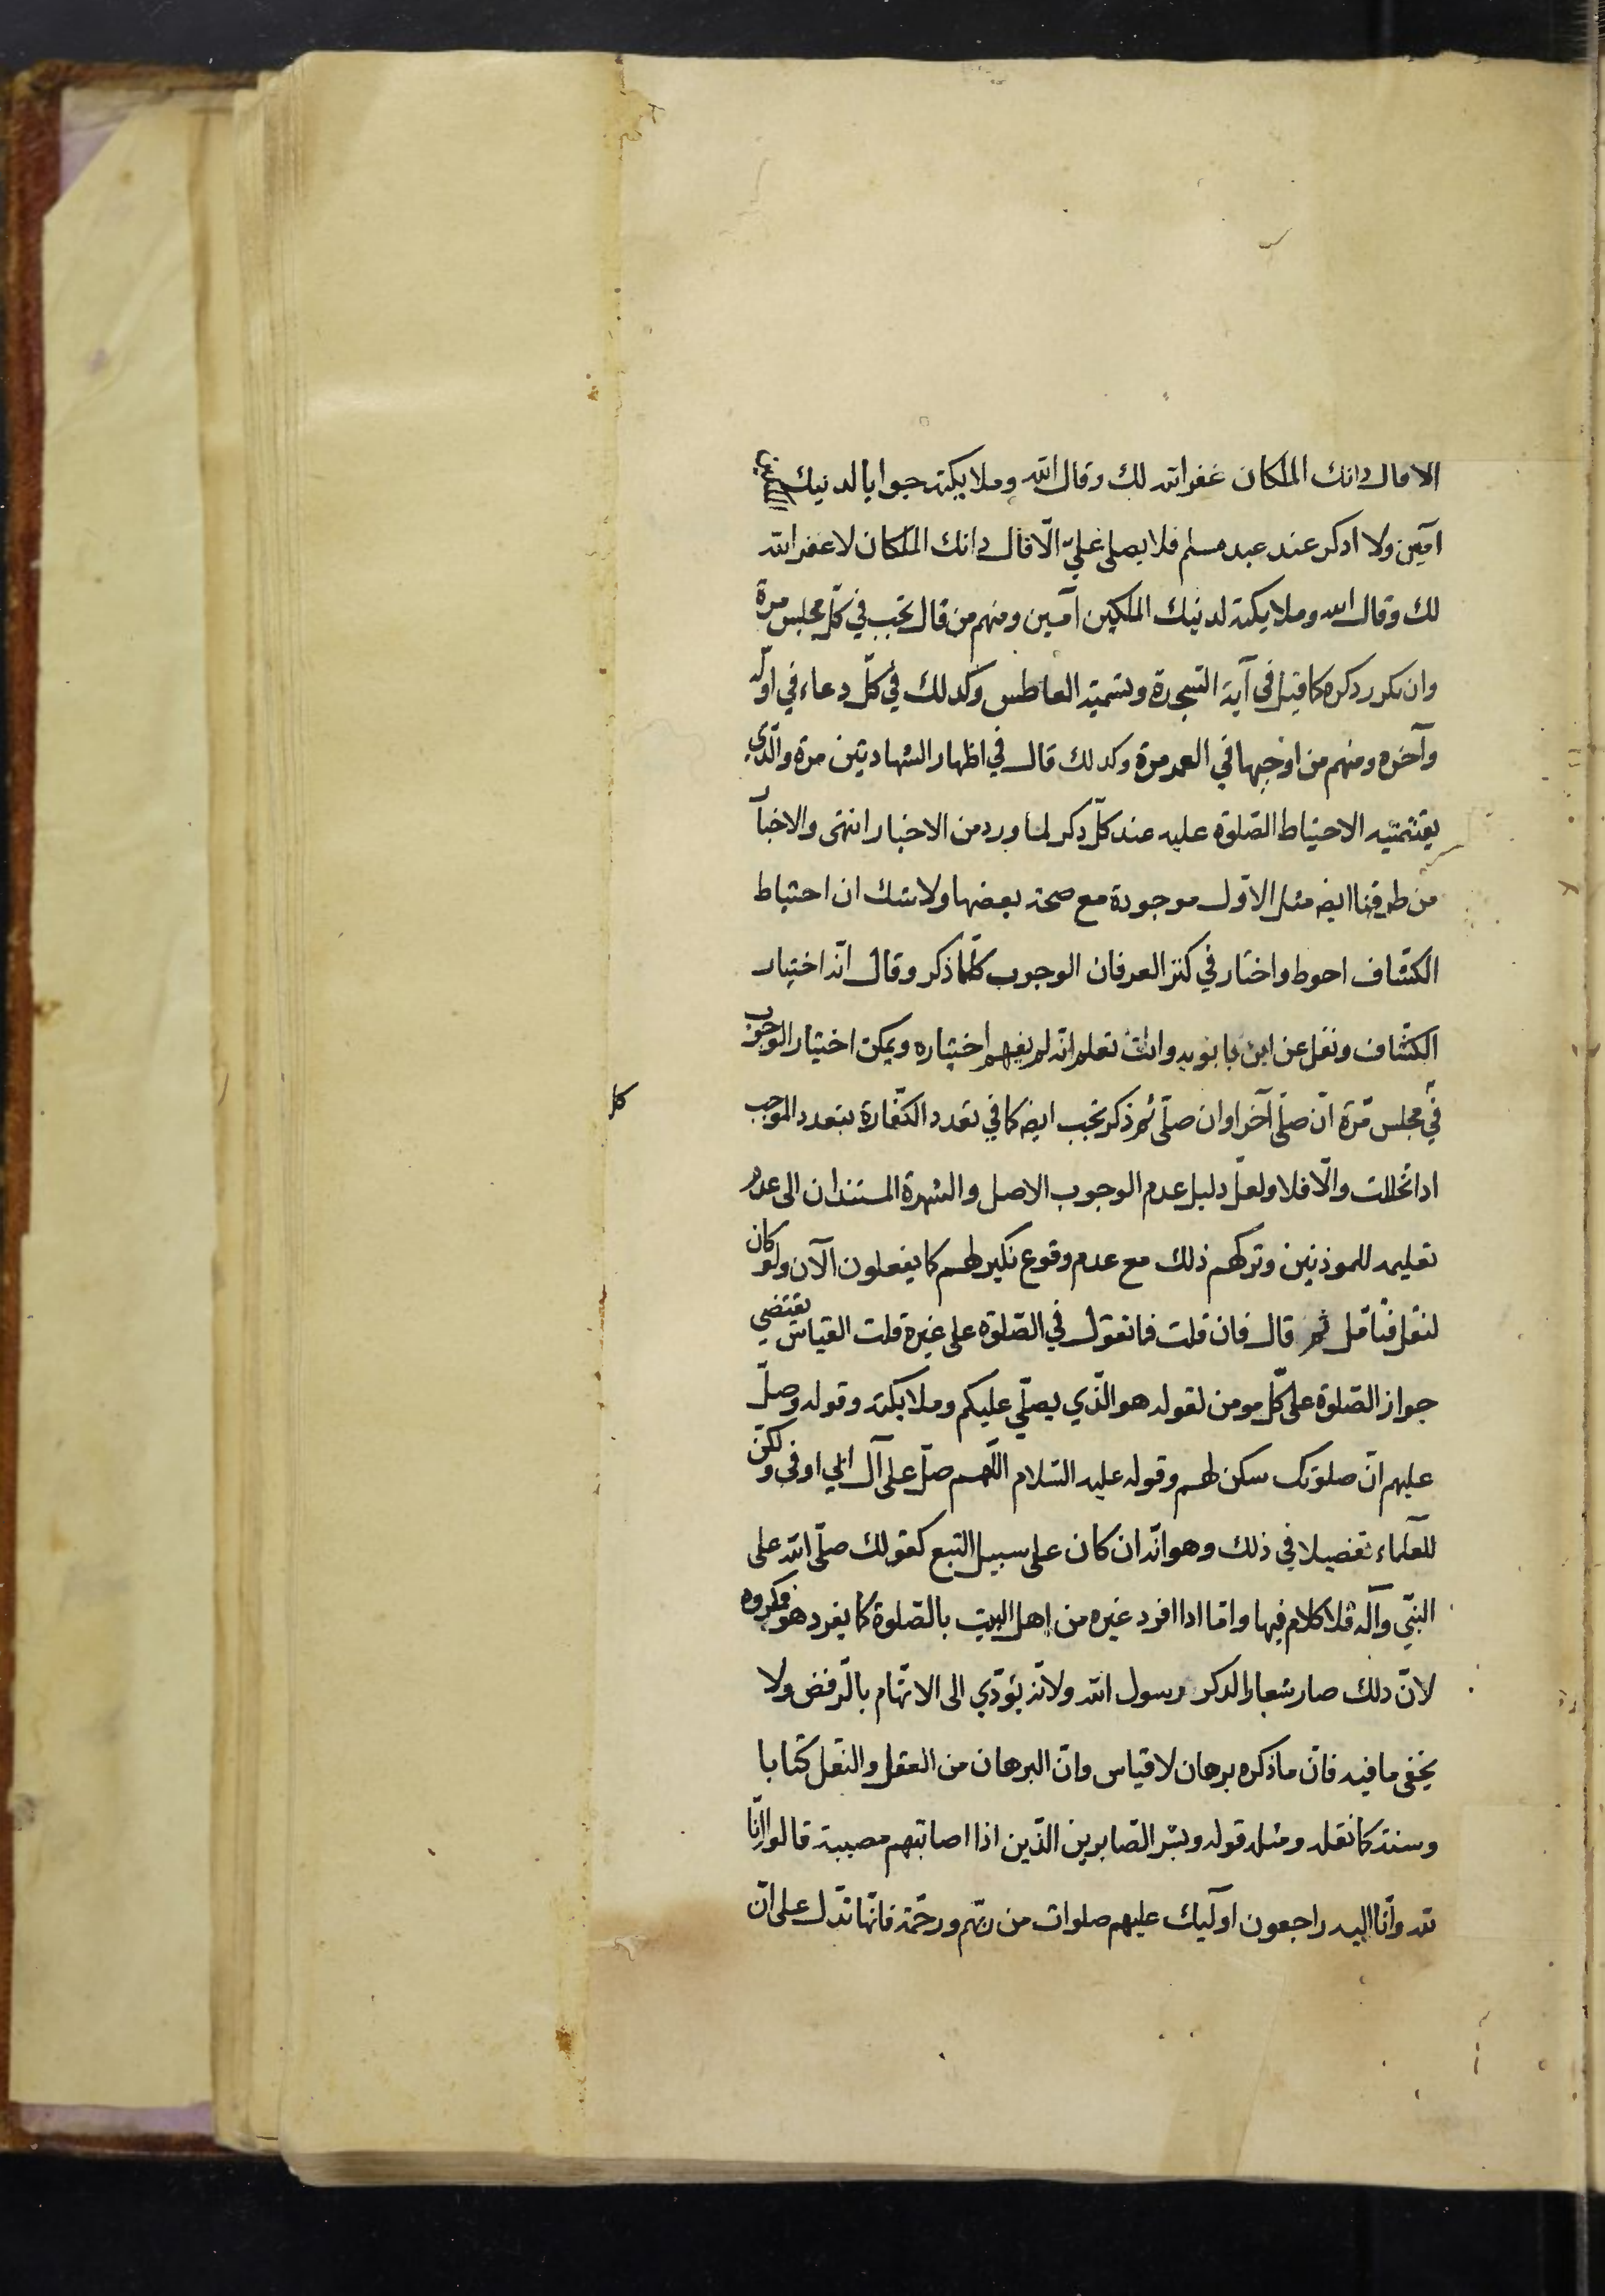 الا قال ذانك الملكان غفر الله لك وقال الله وملايكته جوابا لذنيك الملكين
آمين ولا اذكر عند عبد مسلم فلا يصلي عليّ الّا قال ذانك الملكان لا غفر الله
لك وقال الله وملايكته لذنيك الملكين آمين ومنهم من قال تجب في كلّ مجلس مرة
وان تكرر ذكره كما قيل في آية السجدة وتشميت العاطس وكذلك في كلّ دعاء في اوله
وآخره ومنهم من اوجبها في العمر مرة وكذلك قال في اظهار الشهادتين مرة والّذي
يقتضيه الاحتياط الصّلوة عليه عند كلّ ذكر لما ورد من الاخبار انتهى والاخبار
من طرقنا ايضه مثل الاوّل موجودة مع صحة بعضها ولا شك ان احتياط
الكشّاف احوط واختار في كنز العرفان الوجوب كلّما ذكر وقال انّه اختيار
الكشّاف ونقل عن ابن بابويه وانت تعلم انّه لم يفهم اختياره ويمكن اختيار الوجوب
في مجلس مّرة ان صلّى آخرا وان صلّى ثم ذكر تجب ايضه كما في تعدد الكفّارة بتعدد الموجب
اذا تخللت والّا فلا ولعلّ دليل عدم الوجوب الاصل والشهرة المستندان الى عدم
تعليمه للموذنين وتركهم ذلك مع عدم وقوع نكير لهم كما يفعلون الآن ولو كان
لنقل فتأمّل ثم قال فان قلت فما تقول في الصّلوة على غيره قلت القياس يقتضي
جواز الصّلوة على كلّ مومن لقوله هو الّذي يصلّي عليكم وملايكته وقوله وصلّ
عليهم انّ صلوتك سكن لهم وقوله عليه السّلام اللّهم صلّ على آل ابي اوفى ولكنّ
للعلماء تفصيلا في ذلك وهو انّه ان كان على سبيل التبع كقولك صلّى الله على
النبّي وآله فلا كلام فيها وامّا اذا افرد غيره من اهل البيت بالصّلوة كما يفرد هو فمكروه
لانّ ذلك صار شعارا لذكر رسول الله ولانّه يؤدّي الى الاتّهام بالرّفض ولا
يخفى ما فيه فانّ ما ذكره برهان لا قياس وانّ البرهان من العقل والنقل كتابا
وسنة كما نقله ومثله قوله وبشر الصّابرين الّذين اذا اصابتهم مصيبة قالوا انّا
لله وانّا اليه راجعون اولئيك عليهم صلوات من ربّهم ورحمة فانّها تدّل على انّ